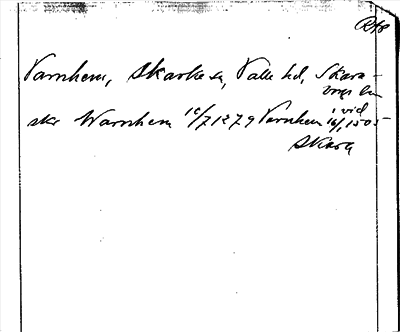 Rf8
Varnhem, Skarke sn, Valle hd, Skara-
borgs län
skr Warnhem 10/7 1279 Varnhem 16/1 1505
i vid
Skara